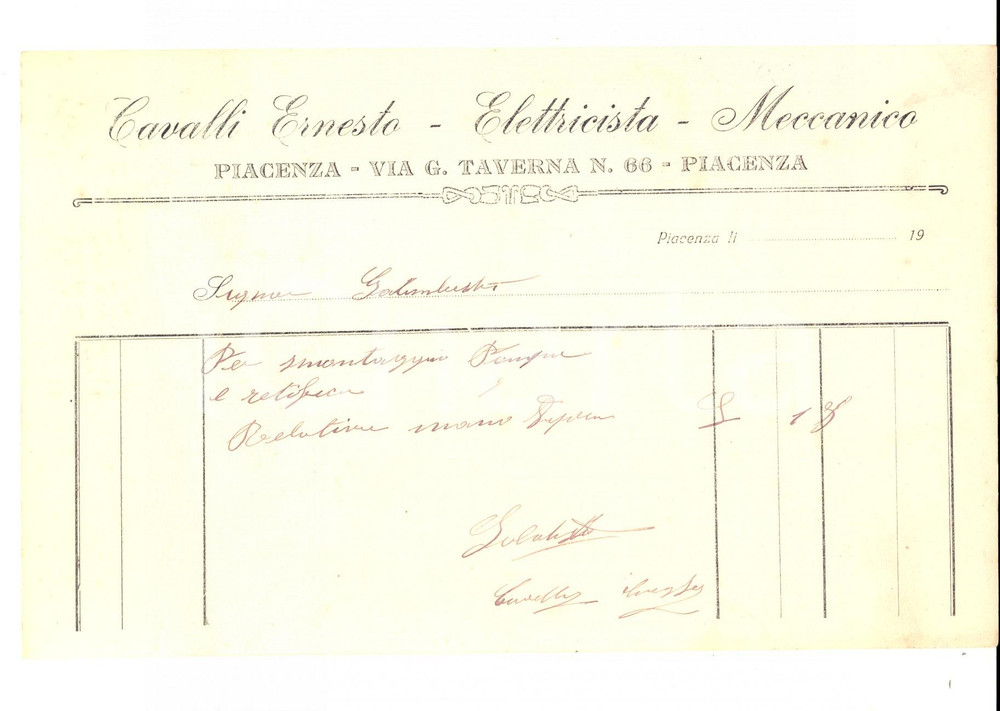 Cavalli Ernesto - Elettricista - Meccanico
PIACENZA - VIA G. TAVERNA N. 66 - PIACENZA
Piacenza li 19
Signor
Per smontaggio Pompa
e retifica
Relative mano D'opera £ 18
Saldato